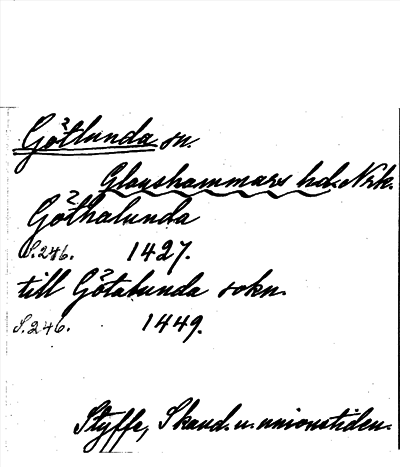 Götlunda sn.
Glanshammars hd. Nrk.
Göthalunda
S. 246. 1427.
till Götalunda sokn.
S. 246. 1449.
Styffe, Skand. u. unionstiden.